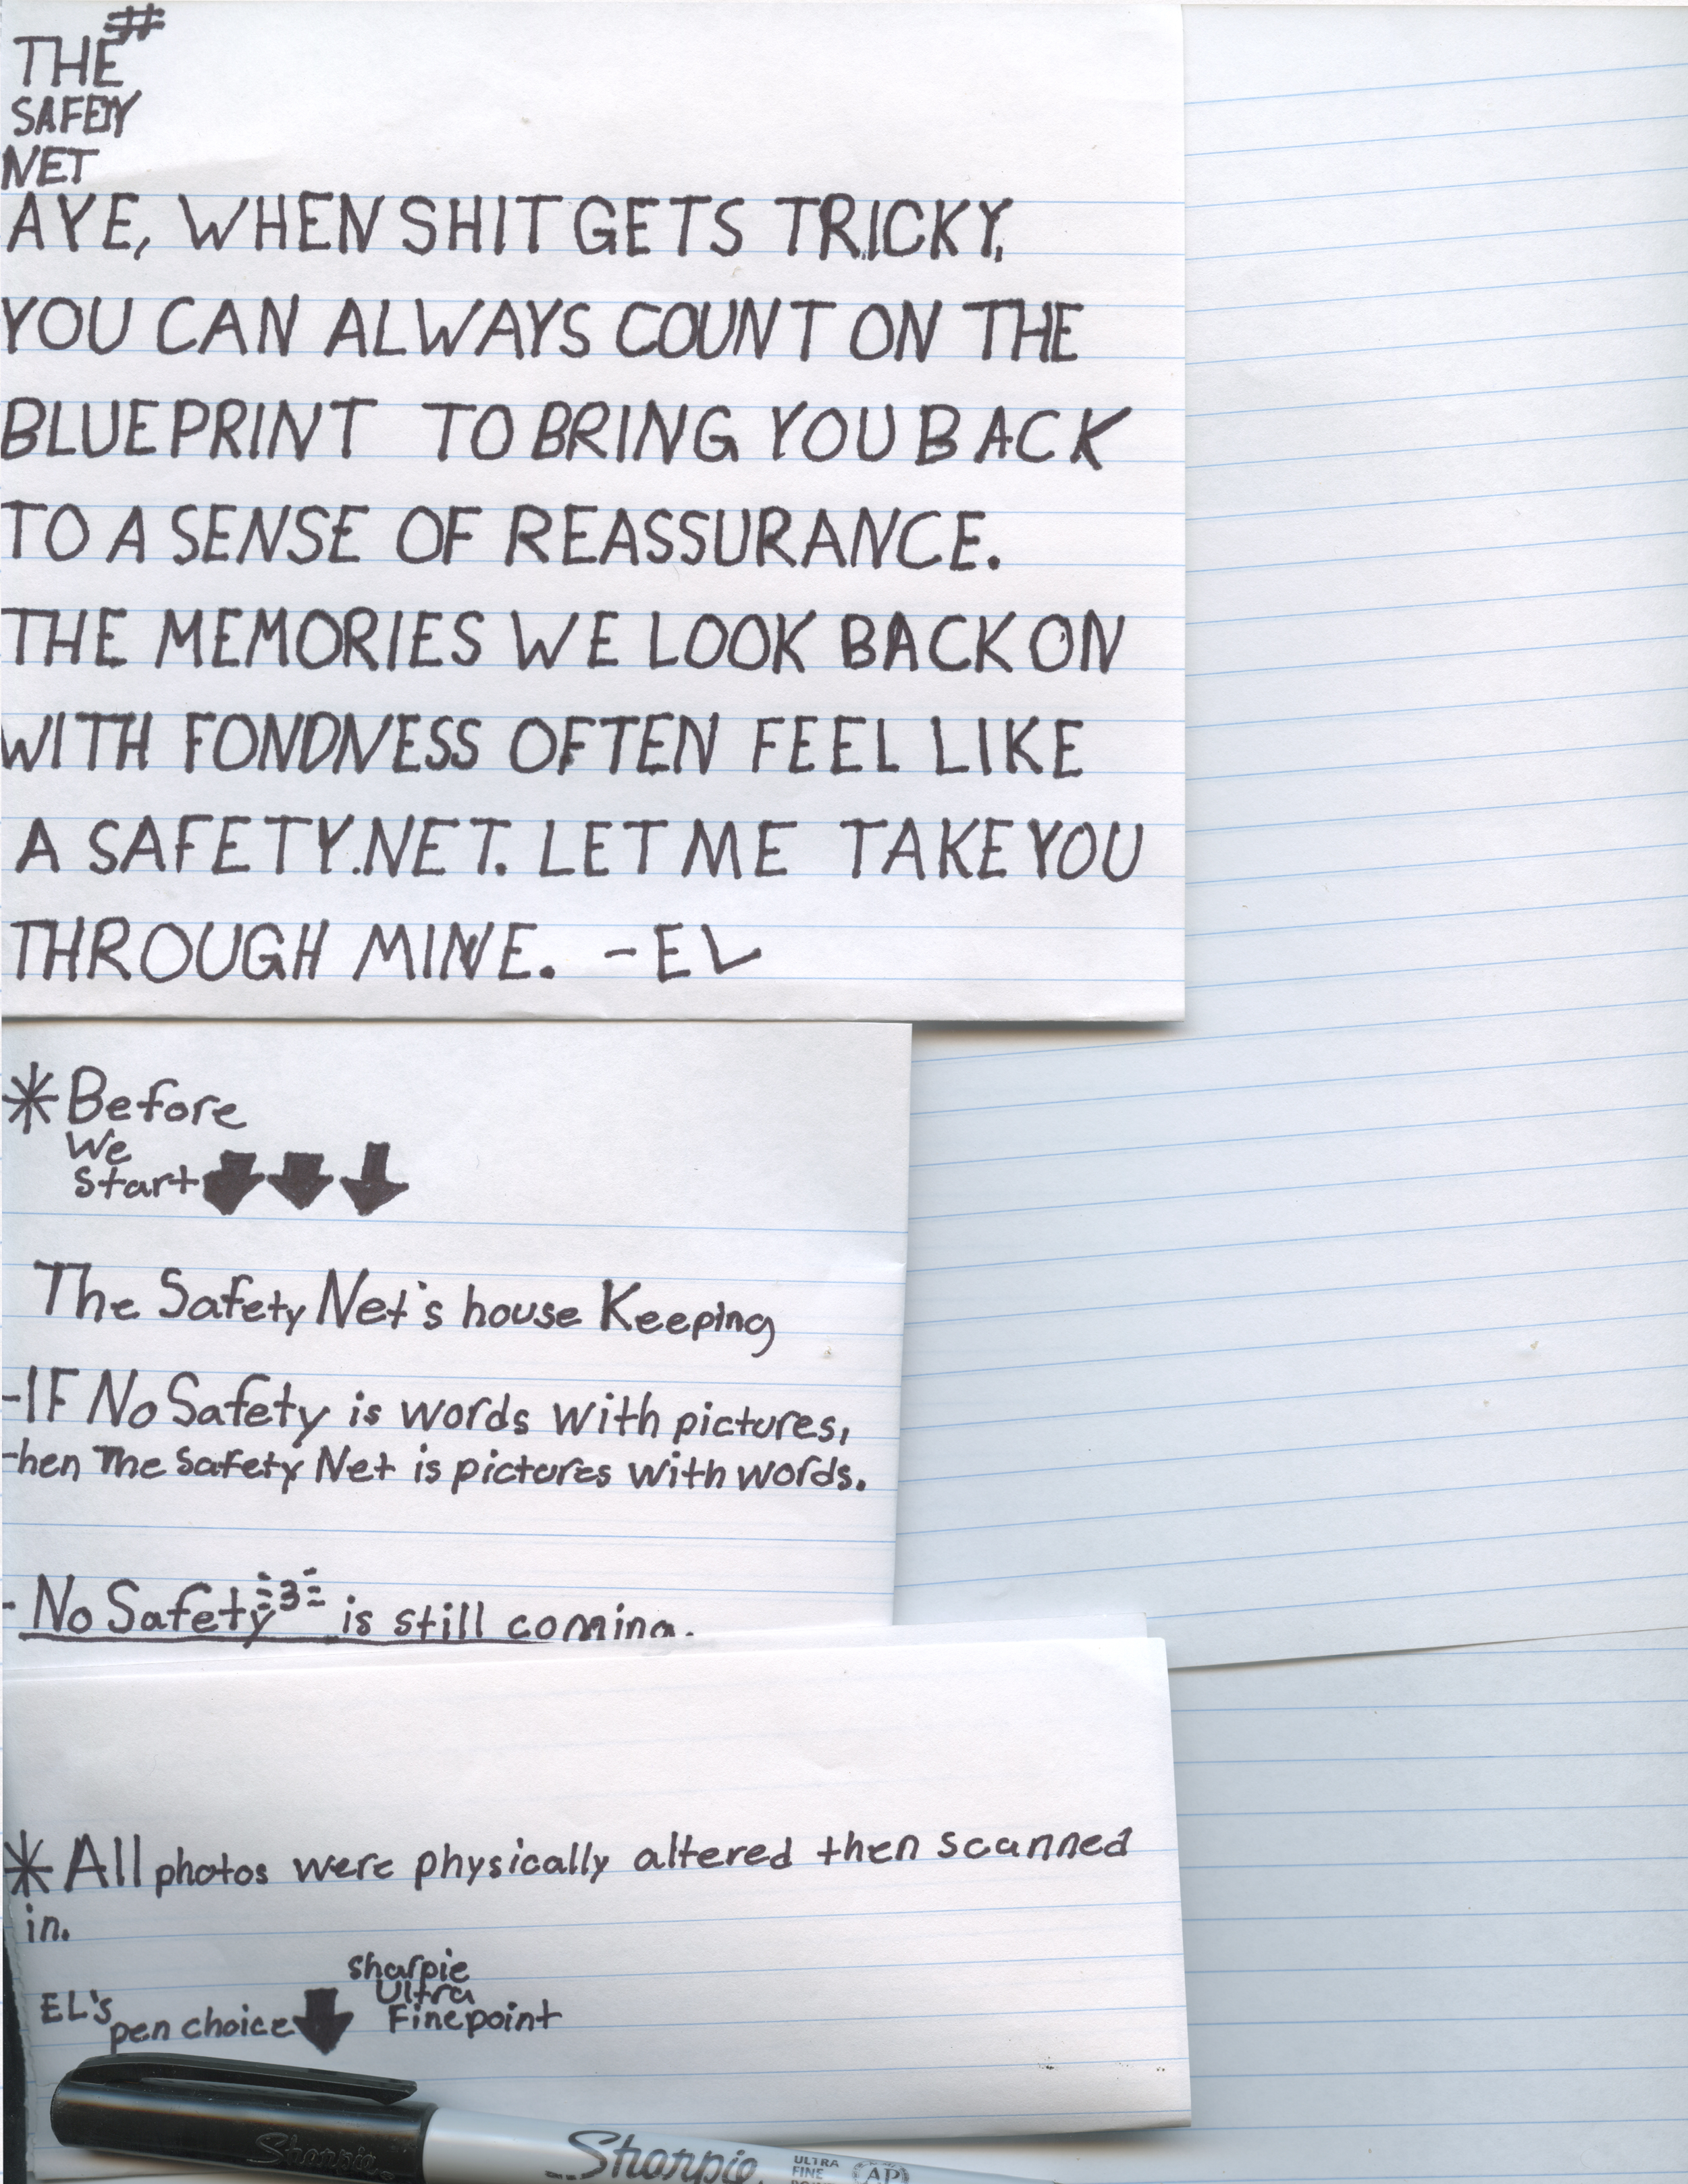 THE #
SAFETY
NET
AYE, WHEN SHIT GETS TRICKY,
YOU CAN ALWAYS COUNT ON THE
BLUEPRINT TO BRING YOU BACK
TO A SENSE OF REASSURANCE.
THE MEMORIES WE LOOK BACK ON
WITH FONDNESS OFTEN FEEL LIKE
A SAFETY.NET. LET ME TAKE YOU
THROUGH MINE. -EL
*Before
We
Start
The Safety Net's house Keeping
-IF No Safety is words with pictures,
then The Safety Net is pictures with words.
- No Safety 3 is still coming.
*All photos were physically altered then scanned
in.
EL's pen choice
sharpie
Ultra
Finepoint
Sharpie
Sharpie.
ULTRA
FINE
POINT
AP